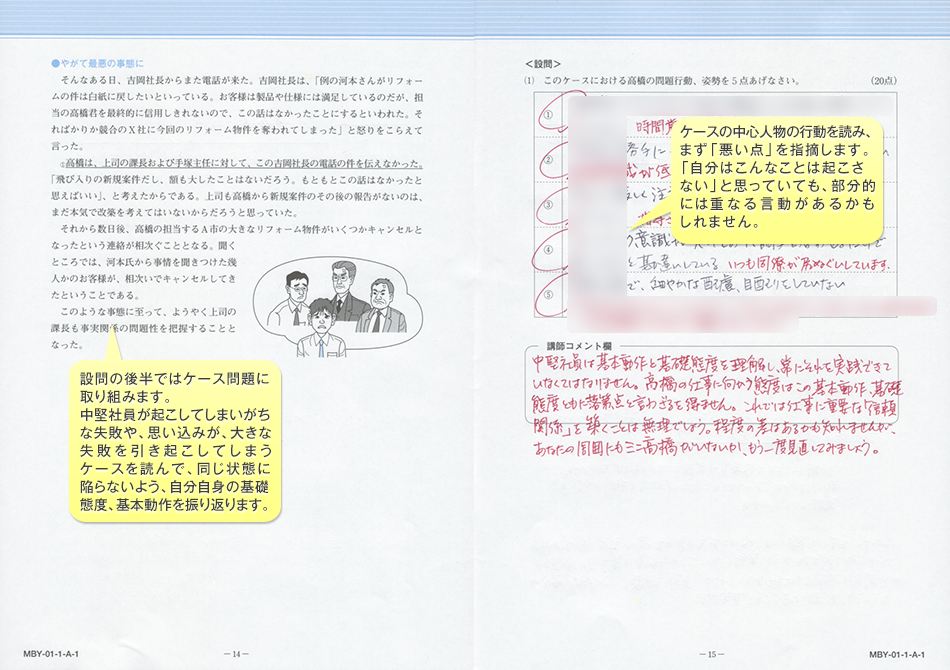 ●やがて最悪の事態に
そんなある日、吉岡社長からまた電話が来た。吉岡社長は、「例の河本さんがリフォー
ムの件は白紙に戻したいといっている。お客様は製品や仕様には満足しているのだが、担
当の高橋君を最終的に信用しきれないので、この話はなかったことにするといわれた。そ
ればかりか競合のX社に今回のリフォーム物件を奪われてしまった」と怒りをこらえて
言った。
高橋は、上司の課長および手塚主任に対して、この吉岡社長の電話の件を伝えなかった。
「飛び入りの新規案件だし、額も大したことはないだろう。もともとこの話はなかったと
思えばいい」、と考えたからである。上司も高橋から新規案件のその後の報告がないのは、
まだ本気で改築を考えてはいないからだろうと思っていた。
それから数日後、高橋の担当するA市の大きなリフォーム物件がいくつかキャンセルと
なったという連絡が相次ぐこととなる。聞く
ところでは、河本氏から事情を聞きつけた幾
人かのお客様が、相次いでキャンセルしてき
たということである。
このような事態に至って、ようやく上司の
課長も事実関係の問題性を把握することと
なった。
設問の後半ではケース問題に
取り組みます。
中堅社員が起こしてしまいがち
な失敗や、思い込みが、大きな
失敗を引き起こしてしまう
ケースを読んで、同じ状態に
陥らないよう、自分自身の基礎
態度、基本動作を振り返ります。
MBY-01-1-A-1
－14－
＜設問＞
(1) このケースにおける高橋の問題行動、姿勢を5点あげなさい。 (20点)
①
時間
②
③
④
を勘違いしている いつも同僚が尻ぬぐいしています。
⑤
で、細やかな配慮、目配りをしていない
ケースの中心人物の行動を読み、
まず「悪い点」を指摘します。
「自分はこんなことは起こさ
ない」と思っていても、部分的
には重なる言動があるかも
しれません。
講師コメント欄
中堅社員は基本動作と基礎態度を理解し、常にそれを実践できて
いなくてはなりません。高橋の仕事に向かう態度はこの基本動作、基礎
態度ともに落第点と言わざるを得ません。これでは仕事に重要な「信頼
関係」を築くことは無理でしょう。程度の差はあるかも知れませんが、
あなたの周囲にもミニ高橋がいないか、もう一度見直してみましょう。
－15－
MBY-01-1-A-1